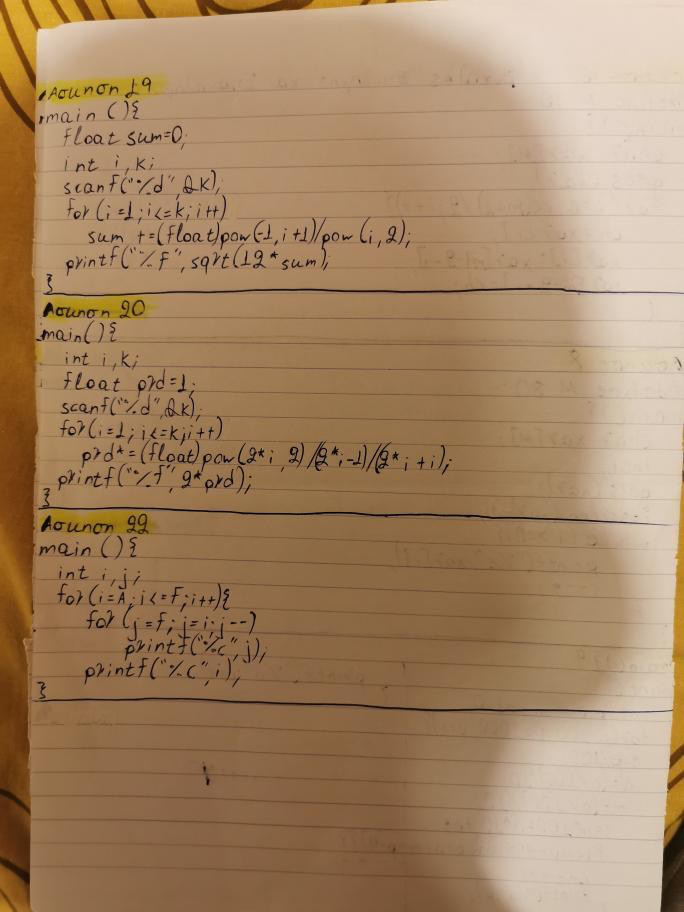 Άσκηση 19
main (){
float sum=0;
int i,k;
scanf("%d",&k);
for(i=1;i<=k;i++)
sum +=(float)pow(-1,i+1)/pow(i,2);
printf("%f",sqrt(12*sum);
}
Άσκηση 20
main(){
int i,k;
float prd=1;
scanf("%d",&k);
for(i=1;i<=k;i++)
prd*=(float)pow(2*i,2)/(2*i-1)/(2*i+i);
printf("%f",2*prd);
}
Άσκηση 22
main (){
int i,j;
for(i=A;i<=F;i++){
for (j=f;j=i;j--)
printf("%c",j);
printf("%c",i);
}